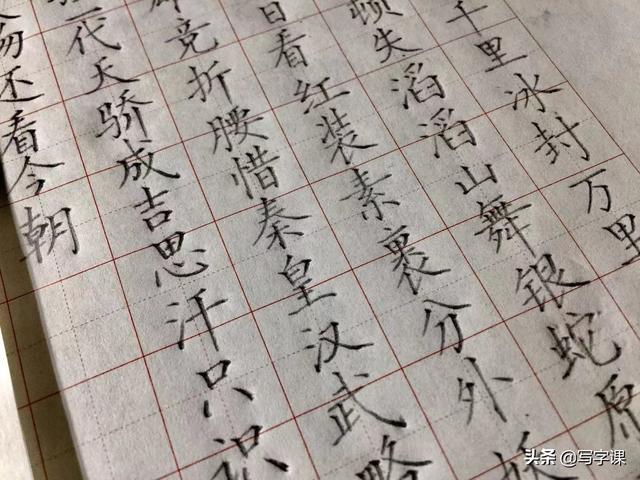 千里冰封万里
顿失滔滔山舞银蛇原
日看红装素裹分外妖
竞折腰惜秦皇汉武略
代天骄成吉思汗只识
还看今朝
头条 @写字课